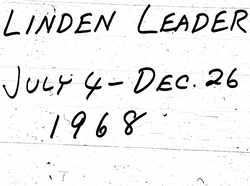 LINDEN LEADER
JULY 4 - DEC. 26
1968